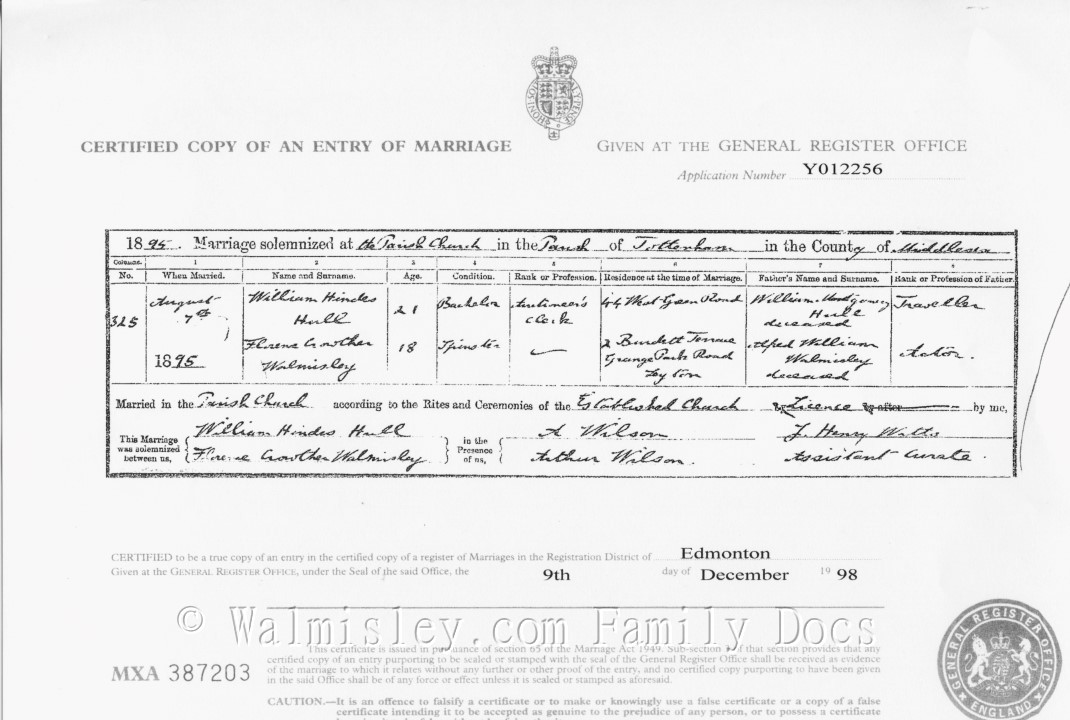 CERTIFIED COPY OF AN ENTRY OF MARRIAGE
GIVEN AT THE GENERAL REGISTER OFFICE
Application Number Y012256
1895. Marriage solemnized at the Parish Church in the Parish of Tottenham in the County of Middlesex
Columns. 1 2 3 4 5 6 7 8
No. When Married. Name and Surname. Age. Condition. Rank or Profession. Residence at the time of Marriage. Father's Name and Surname. Rank or Profession of Father.
325 August 7th 1895
William Hindes Hull 21 Bachelor Auctioneer's Clerk 44 West Green Road William Montgomery Hull deceased Traveller
Florence Crowther Walmisley 18 Spinster 2 Burdett Terrace Grange Park Road Leyton Alfred William Walmisley deceased Actor.
Married in the Parish Church according to the Rites and Ceremonies of the Established Church by Licence or after by me,
This Marriage was solemnized between us,
William Hindes Hull
Florence Crowther Walmisley
in the Presence of us,
A Wilson
Arthur Wilson.
J. Henry Watts
Assistant Curate.
CERTIFIED to be a true copy of an entry in the certified copy of a register of Marriages in the Registration District of Edmonton
Given at the GENERAL REGISTER OFFICE, under the Seal of the said Office, the 9th day of December 1998
© Walmisley.com Family Docs
This certificate is issued in pursuance of section 65 of the Marriage Act 1949. Sub-section 3 of that section provides that any
certified copy of an entry purporting to be sealed or stamped with the seal of the General Register Office shall be received as evidence
of the marriage to which it relates without any further or other proof of the entry, and no certified copy purporting to have been given
in the said Office shall be of any force or effect unless it is sealed or stamped as aforesaid.
MXA 387203
CAUTION.—It is an offence to falsify a certificate or to make or knowingly use a false certificate or a copy of a false
certificate intending it to be accepted as genuine to the prejudice of any person, or to possess a certificate
GENERAL REGISTER OFFICE
ENGLAND